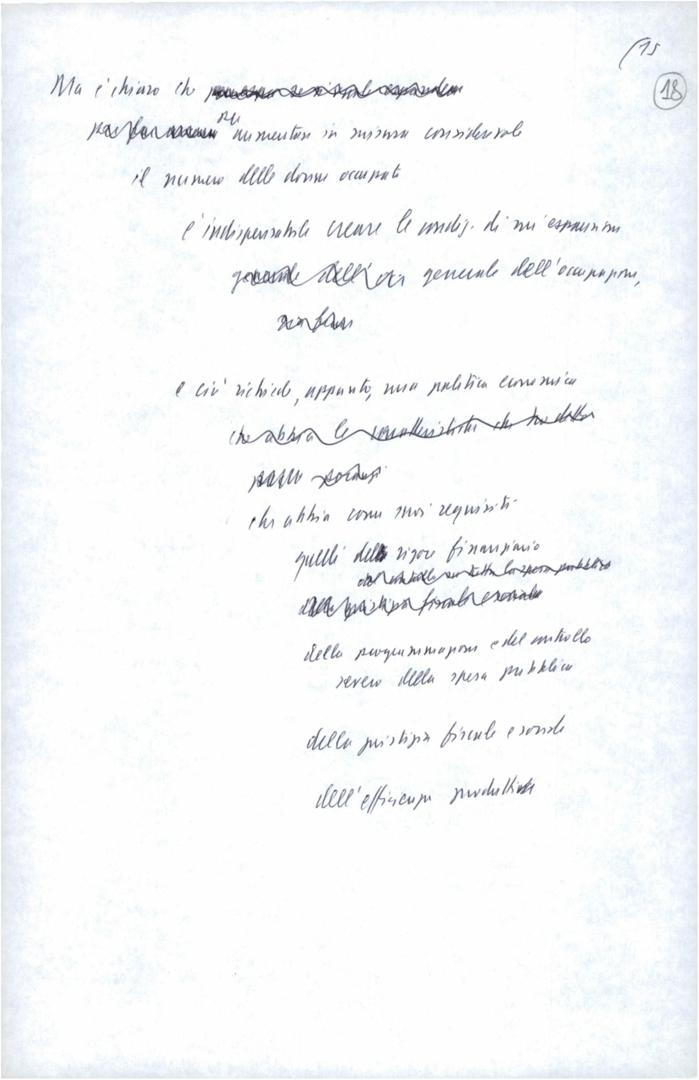 15
18
Ma è chiaro che
per aumentare in misura considerevole
il numero delle donne occupate
è indispensabile creare le condiz. di un'espansione
generale dell'occupazione,
e ciò richiede, appunto, una politica economica
che abbia le caratteristiche che ho detto
che abbia come suoi requisiti
quelli del rigore finanziario
della giustizia fiscale e sociale
della programmazione e del controllo
severo della spesa pubblica
della giustizia fiscale e sociale
dell'efficienza produttiva